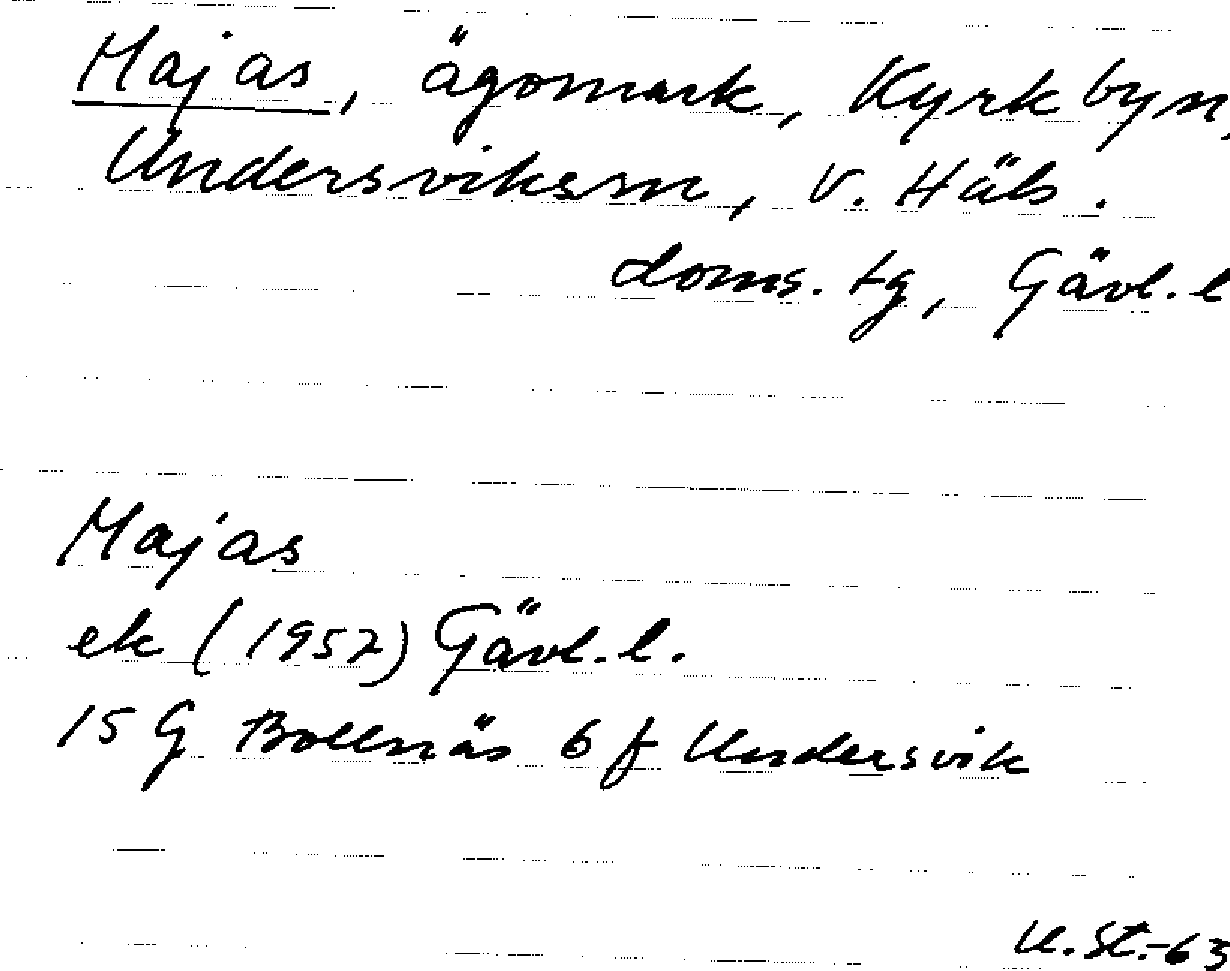 Majas, ägomark, Kyrkbyn,
Undersvikssn, V. Häls.
doms. tg, Gävl. l
Majas
ek (1957) Gävl. l.
15 G Bollnäs 6 f Undersvik
U. St.-63